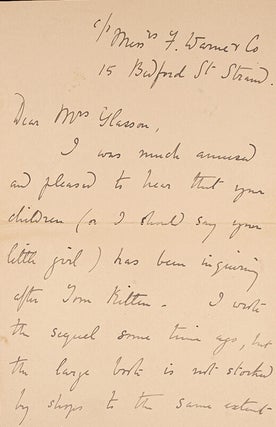 c/o Messrs F. Warne & Co
15 Bedford St Strand.
Dear Mrs Glasson,
I was much amused
and pleased to hear that your
children (or I should say your
little girl) has been inquiring
after Tom Kitten. I wrote
the sequel some time ago, but
the large book is not stocked
by shops to the same extent